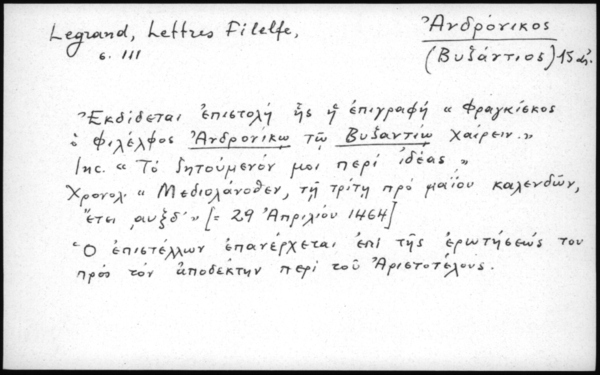 Legrand, Lettres Filelfe,
σ. 111
Ἀνδρόνικος
(Βυζάντιος) 15 αἰ.
Ἐκδίδεται ἐπιστολή ἧς ἡ ἐπιγραφή « Φραγκίσκος
ὁ Φιλέλφος Ἀνδρονίκῳ τῷ Βυζαντίῳ χαίρειν.»
Inc. « Τό ζητούμενόν μοι περί ἰδέας »
Χρονολ. « Μεδιολάνοθεν, τῇ τρίτῃ πρό μαΐου καλενδῶν,
ἔτει ͵αυξδ΄» [= 29 Ἀπριλίου 1464]
Ὁ ἐπιστέλλων ἐπανέρχεται ἐπί τῆς ἐρωτήσεώς του
πρός τόν ἀποδέκτην περί τοῦ Ἀριστοτέλους.